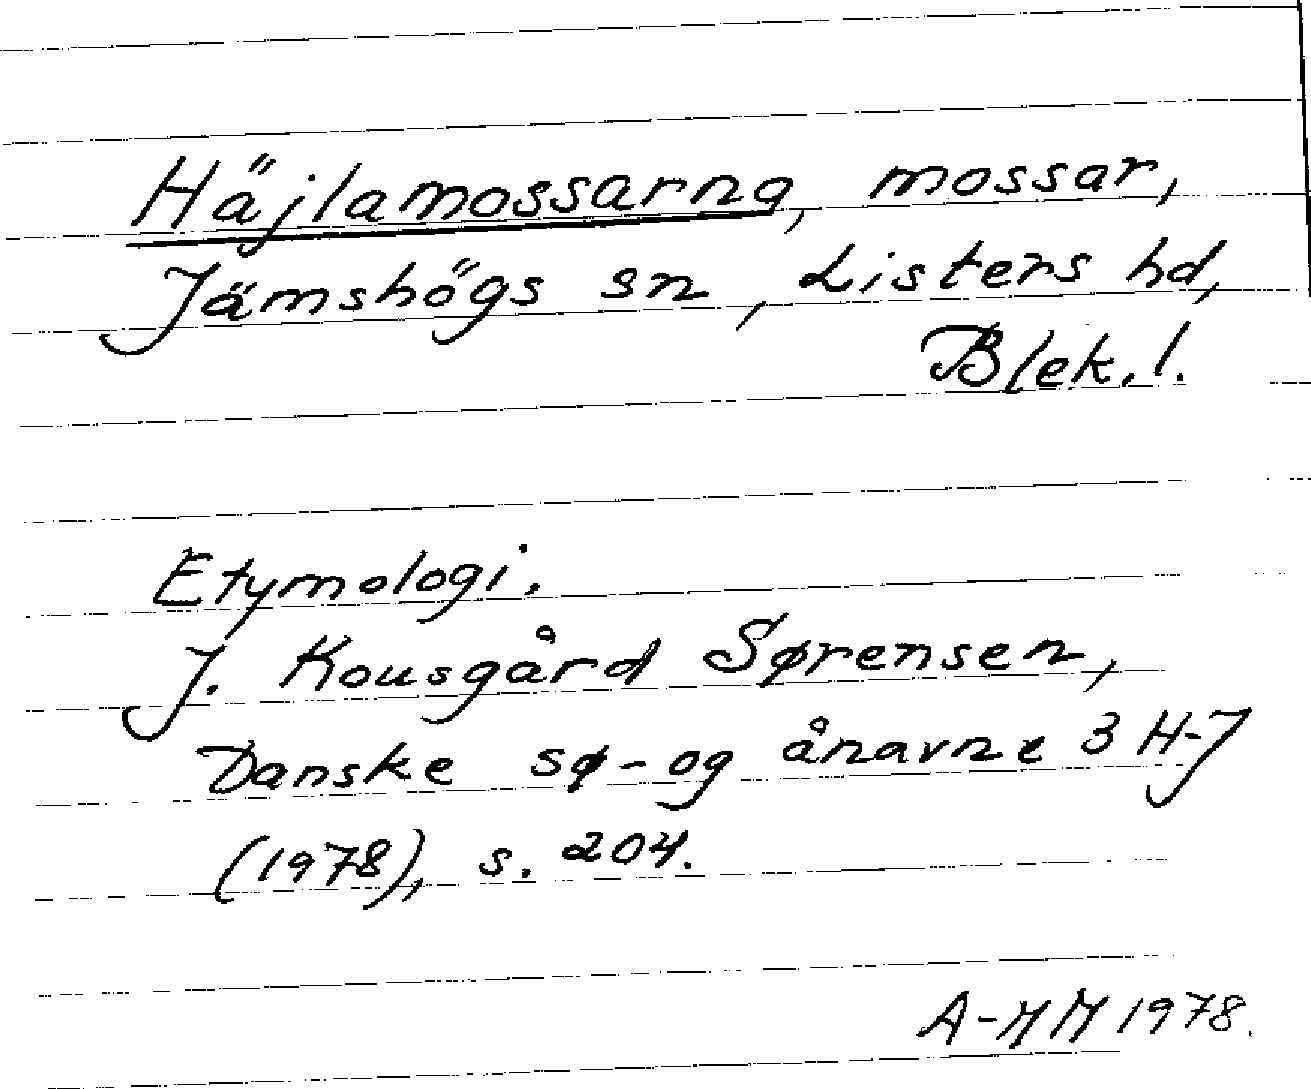 Häjlamossarna, mossar,
Jämshögs sn, Listers hd,
Blek. l.
Etymologi.
J. Kousgård Sørensen,
Danske sø- og ånavne 3 H-J
(1978), s. 204.
A-MM 1978.